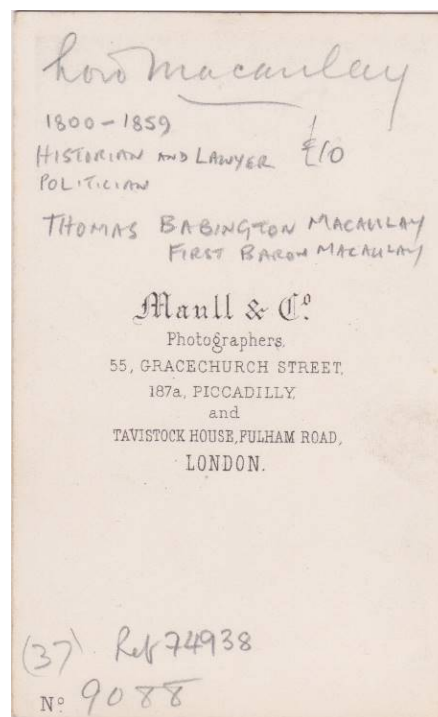 Lord Macaulay
1800-1859
HISTORIAN AND LAWYER £10
POLITICIAN
THOMAS BABINGTON MACAULAY
FIRST BARON MACAULAY
Maull & Co.
Photographers,
55, GRACECHURCH STREET,
187a, PICCADILLY,
and
TAVISTOCK HOUSE, FULHAM ROAD,
LONDON.
(37) Ref 74938
No. 9088